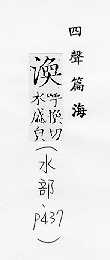 四聲篇海
渙
呼換切
水盛皃
(水部、p437)